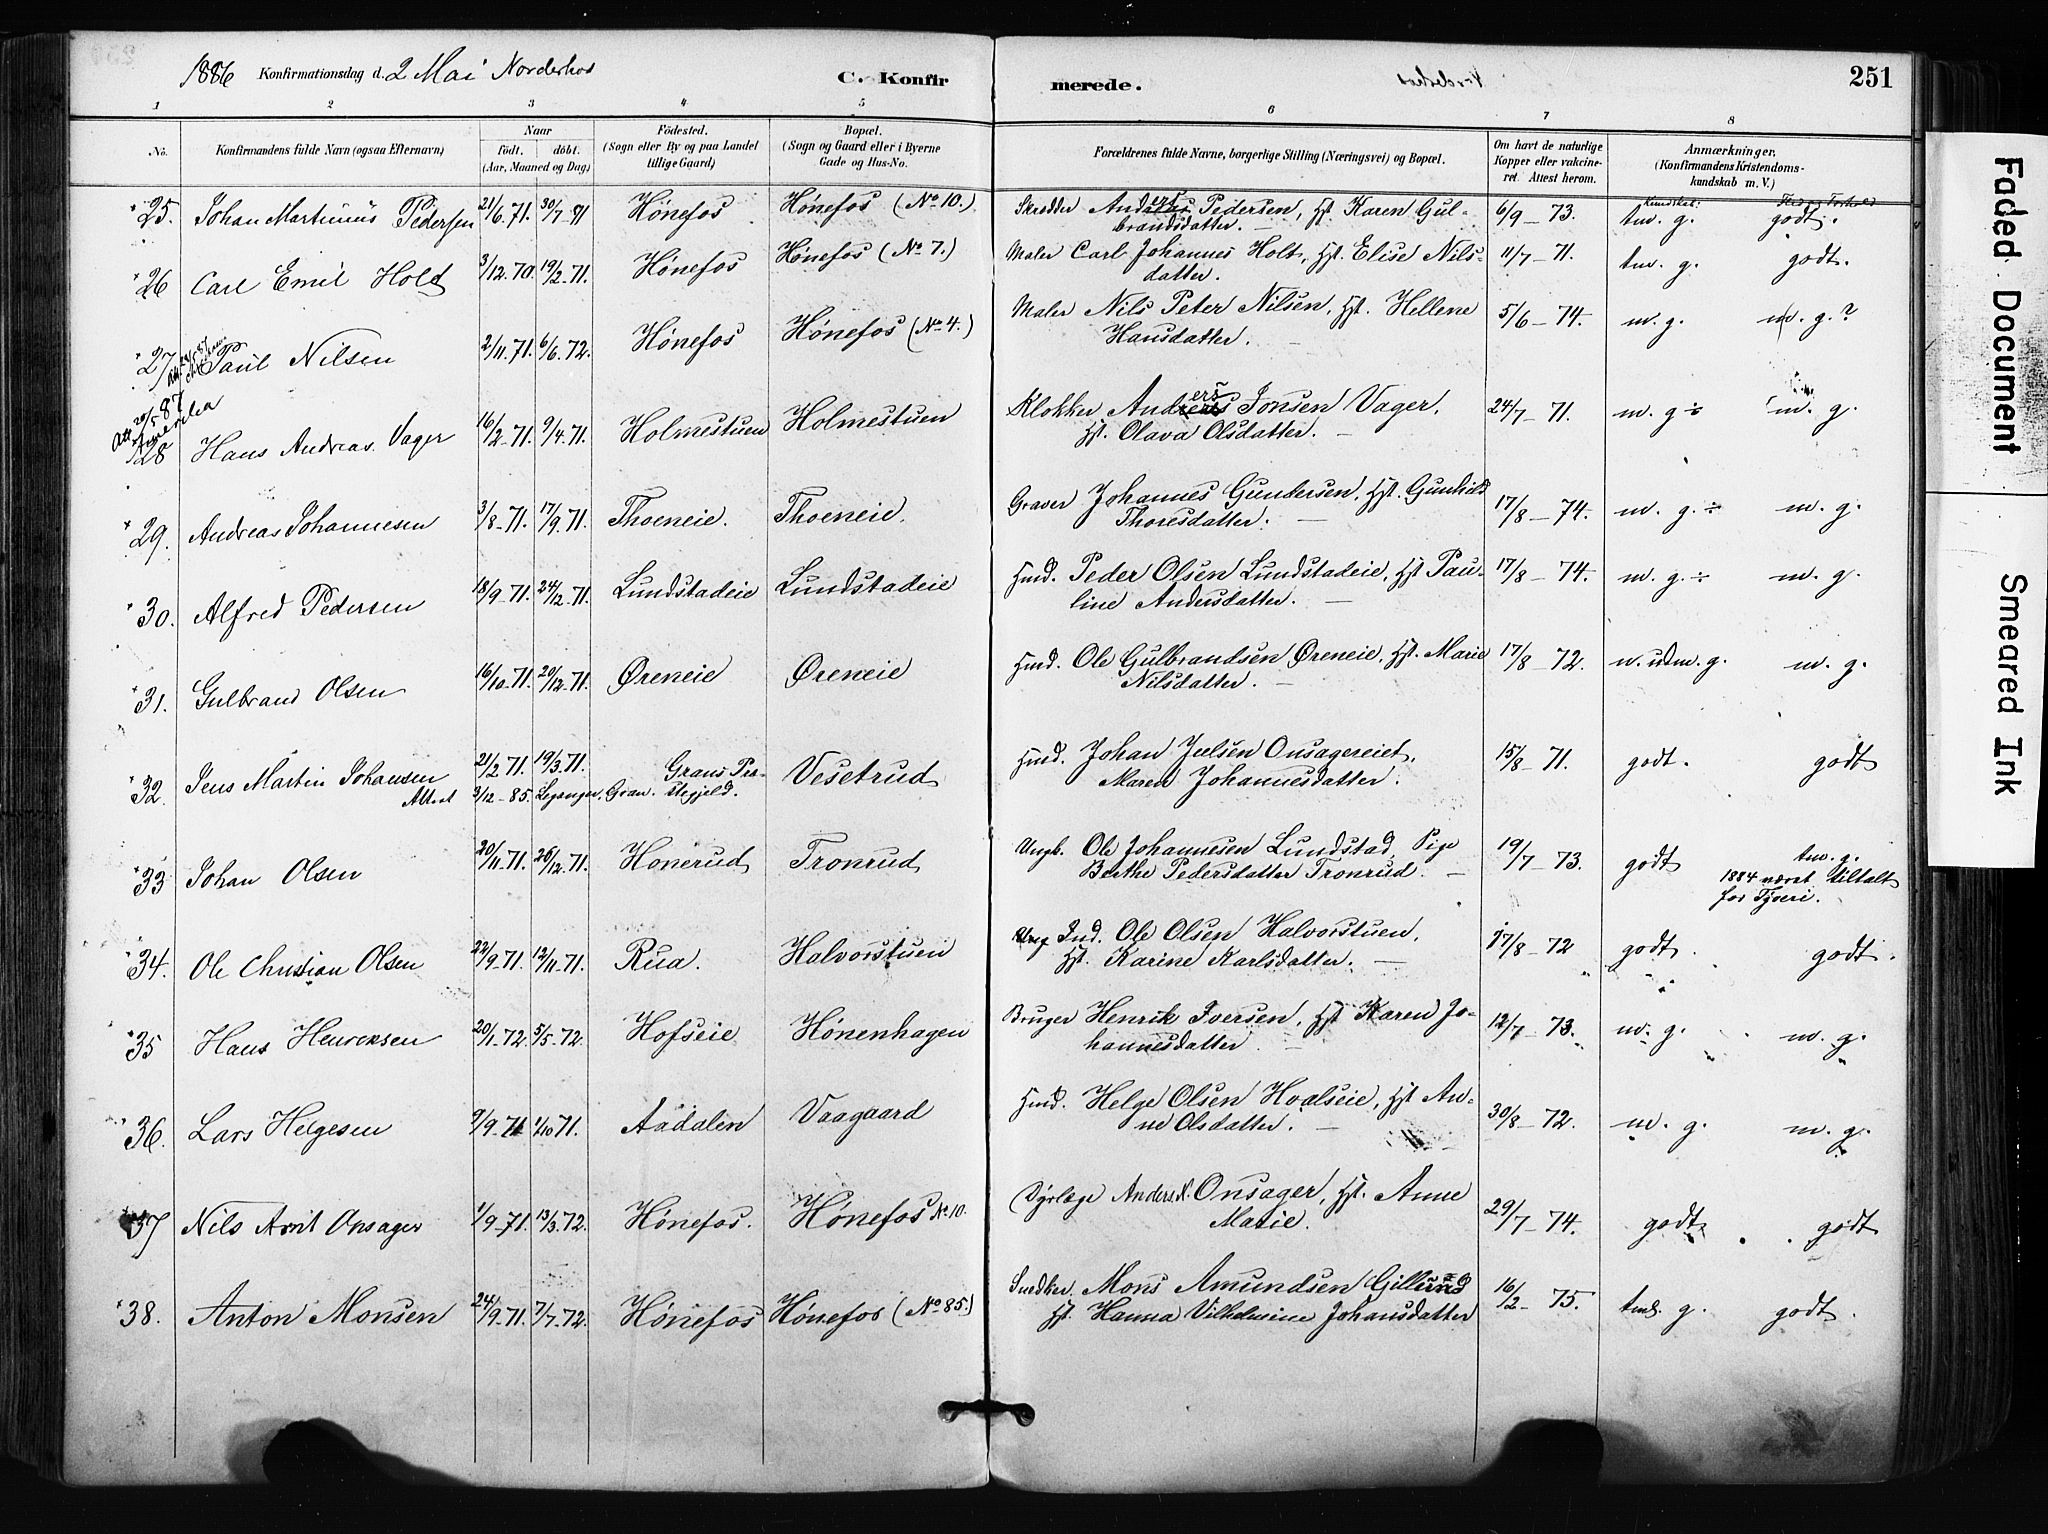 1886 Konfirmationsdag d. 2 Mai Norderhov C. Konfirmerede. 251
1 2 3 4 5 6 7 8
No. Konfirmandens fulde Navn (ogsaa Efternavn) Naar født. døbt. (Aar, Maaned og Dag) Födested. (Sogn eller By og paa Landet tillige Gaard) Bopæl. (Sogn og Gaard eller i Byerne Gade og Hus-No.) Forældrenes fulde Navne, borgerlige Stilling (Næringsvei) og Bopæl. Om havt de naturlige Kopper eller vakcineret. Attest herom. Anmærkninger, (Konfirmandens Kristendomskundskab m. V.)
25. Johan Martinius Pedersen 21/6.71 30/7-71 Hønefos Hønefos (No 10.) Skrædder Anders Pedersen, Hst. Karen Gulbrandsdatter. 6/9-73. Kundskab: tm. g. godt.
26 Carl Emil Hold 3/12.70. 19/2-71. Hønefos Hønefos (No 7.) Maler Carl Johannes Holt, Hst. Elise Nilsdatter. 11/7-71. tm. g. godt.
27 Paul Nilsen 2/11.71. 6/6.72. Hønefos Hønefos (No 4.) Maler Nils Peter Nilsen, Hst. Hellene Hansdatter. 5/6-74. m. g. m. g.?
Att. 20/5 87 Amerika
28 Hans Andreas Vager 16/2-71. 9/4.71. Holmestuen Holmestuen Klokker Anders Jonsen Vager, Hst. Olava Olsdatter. 24/7-71. m. g ÷ m. g.
29. Andreas Johannesen 3/8-71. 17/9.71. Thoeneie. Thoeneie. Graver Johannes Gundersen, Hst. Gunhild Thoresdatter. 17/8-74. m. g. ÷ m. g.
30. Alfred Pedersen 18/9-71. 24/12-71. Lundstadeie Lundstadeie Hmd. Peder Olsen Lundstadeie, Hst Pauline Andersdatter. 17/8-74. m. g. ÷ m. g.
31. Gulbrand Olsen 16/10-71. 20/12.71. Øreneie Øreneie Hmd. Ole Gulbrandsen Øreneie, Hst. Marie Nilsdatter. 17/8-72. n. udm. g. m. g.
32. Jens Martin Johansen 21/2-71. 19/3.71. Grans Præstegjeld. Vesetrud Hmd. Johan Juelsen Onsagereiet, Maren Johannesdatter. 15/8-71. godt. godt
Attest 3/12-85. Gran.
33 Johan Olsen 20/11.71. 26/12.71. Honerud Tronrud Ungk. Ole Johannesen Lundstad, Pige Berthe Pedersdatter Tronrud. 19/7-73. godt tm. g. 1884 været tiltalt for Tyveri.
34. Ole Christian Olsen 22/9-71. 12/11-71. Rua. Halvorstuen Ind. Ole Olsen Halvorstuen, Hst. Karine Karlsdatter. 17/8-72 godt. godt.
35 Hans Henreksen 20/1-72. 5/5-72. Hofseie Hønenhagen Bruger Henrik Iversen, Hst Karen Johannesdatter. 12/7-73. m. g. m. g.
36. Lars Helgesen 9/9-71 1/10 71. Aadalen Vaagaard Hmd. Helge Olsen Hvalseie, Hst Anne Olsdatter. 30/8-72. m. g. m. g.
37 Nils Arvit Onsager 1/9-71. 13/3.72. Hønefos. Hønefos No 10. Dyrlæge Anders N. Onsager, Hst. Anne Marie. 29/7-74. godt. godt
38. Anton Monsen 24/9.71. 7/7-72. Hønefos Hønefos (No 85.) Snedker. Mons Amundsen Gillerud Hst. Hanna Vilhelmine Johansdatter 16/2-75. tml. g. godt.
Faded Document
Smeared Ink